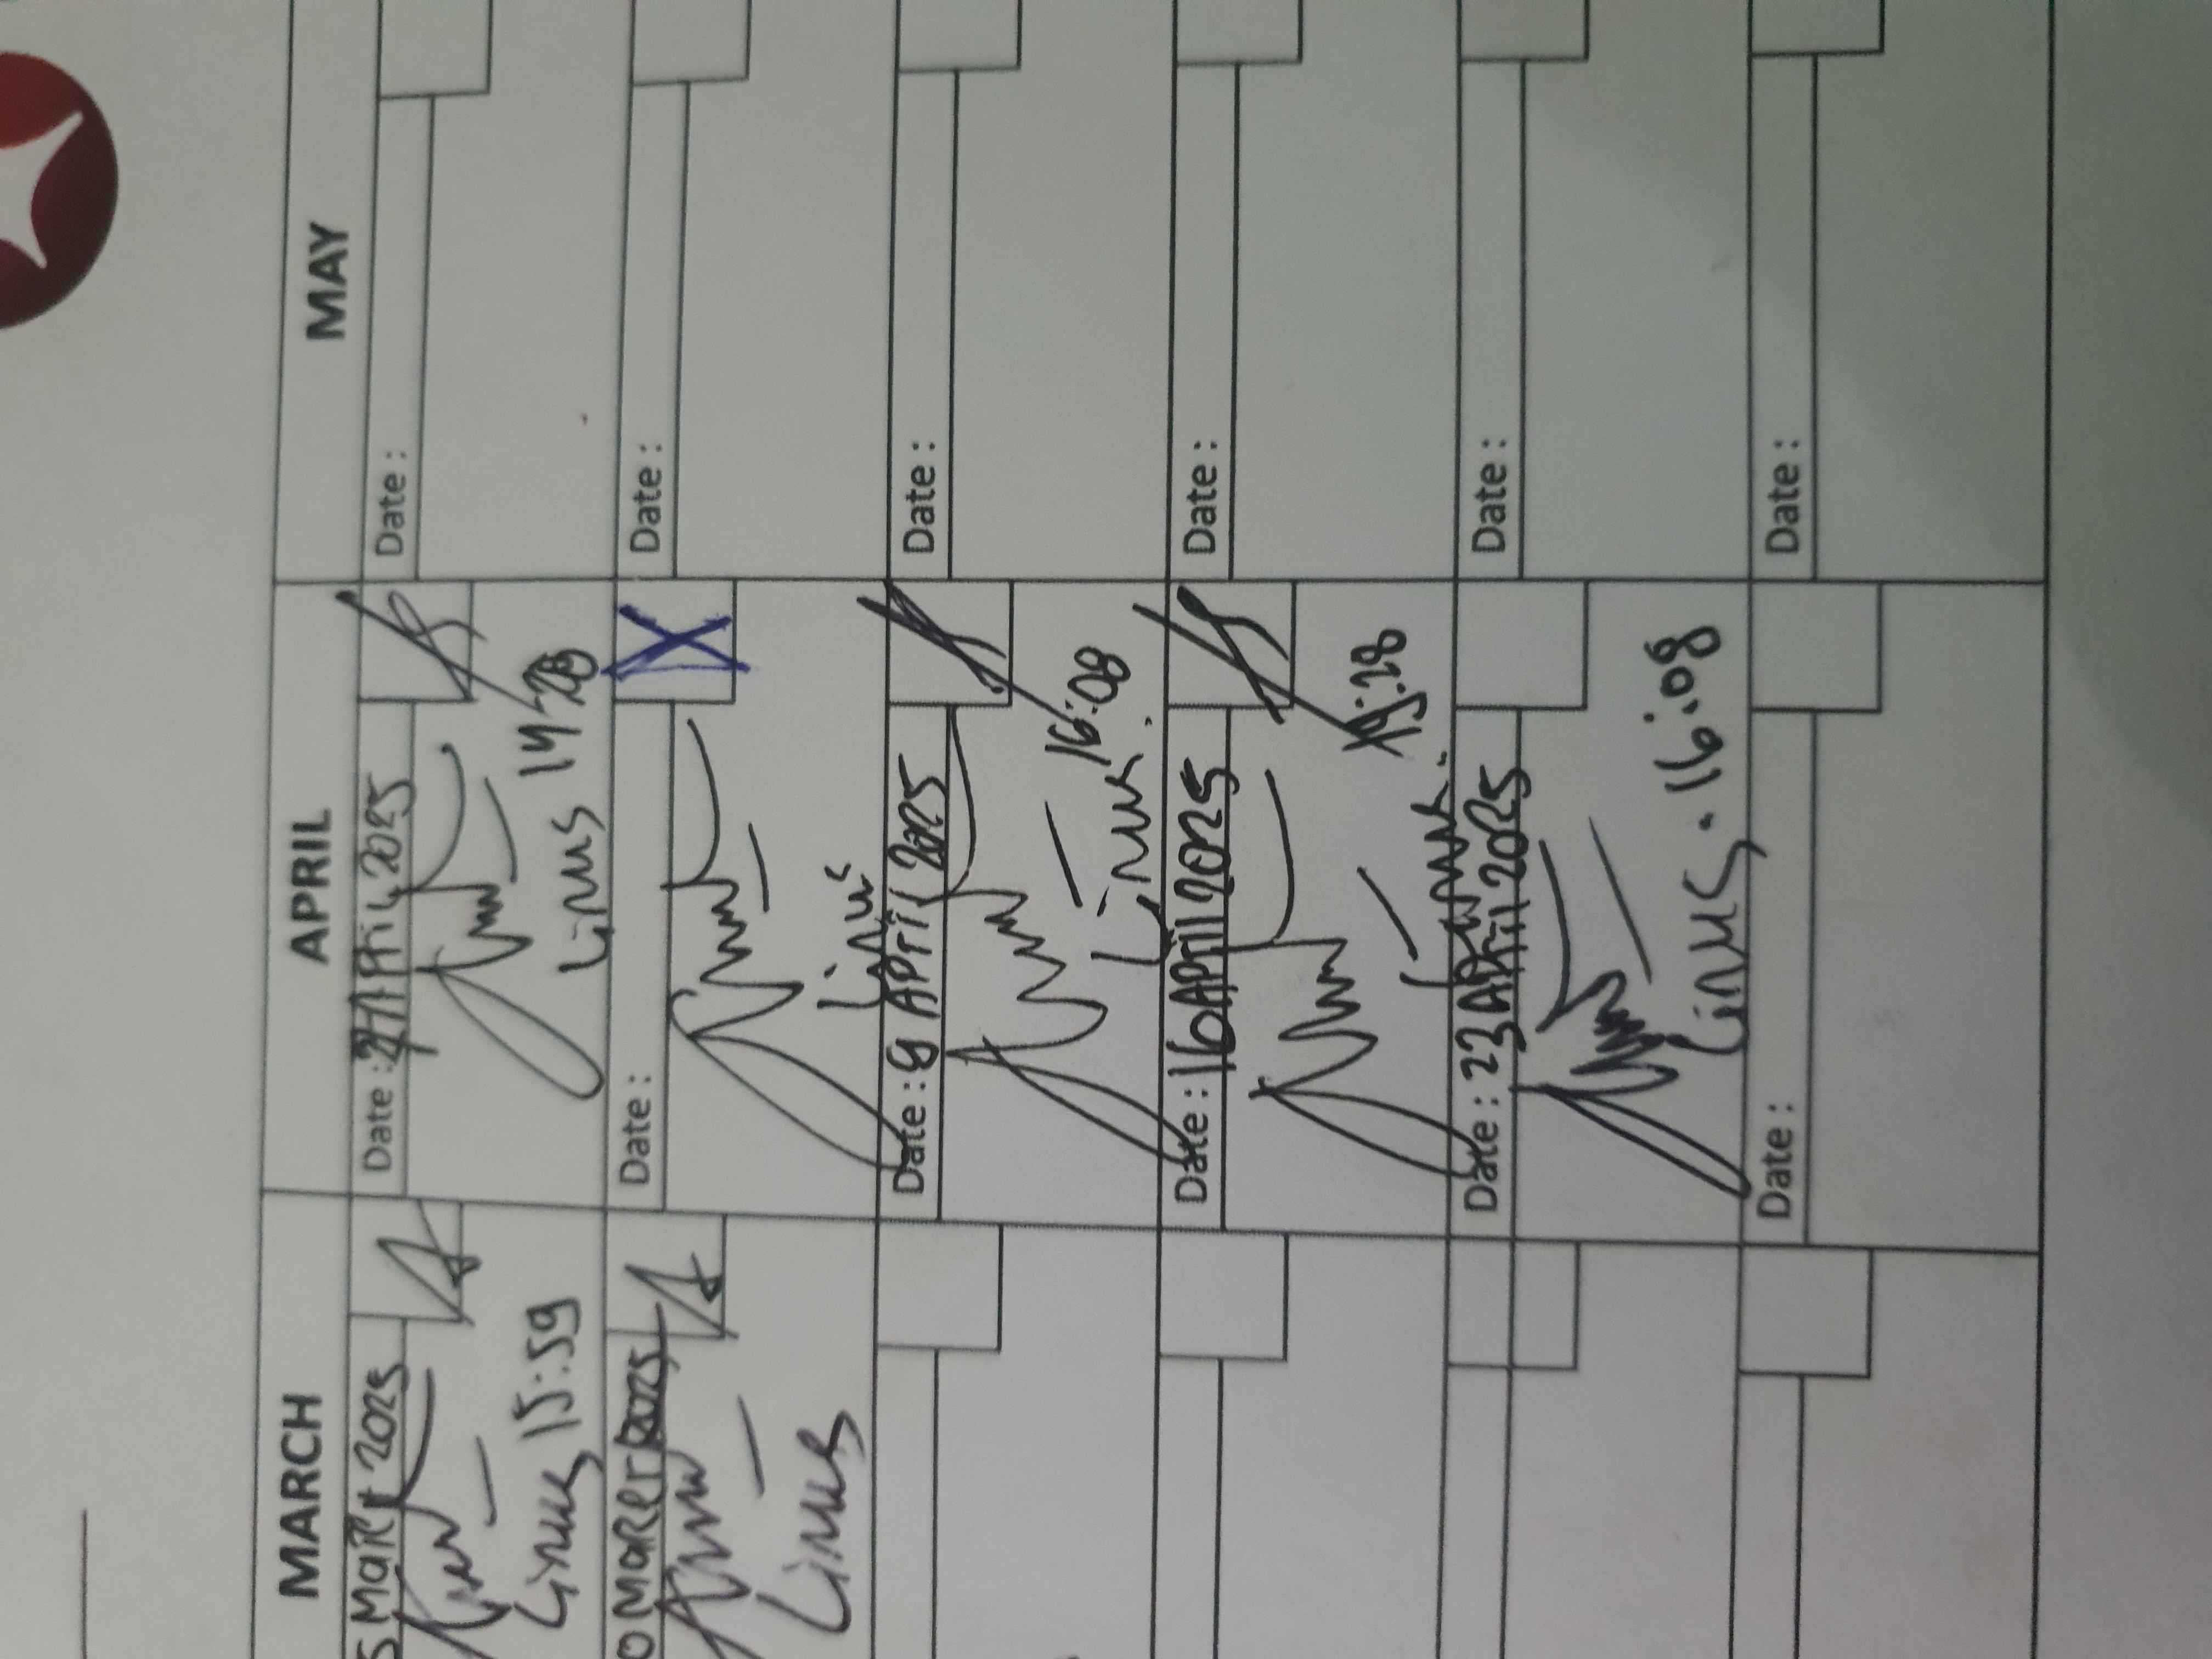 MARCH
APRIL
MAY
5 Mart 2025
Linus 15:59
Linus
Date :
April 2025
Linus 14:28
Date :
Linus
Date : 9 April 2025
16:08
Linus.
Date : 16 April 2025
Linus.
Date : 23 April 2025
Linus. 16:08
Date :
Date :
Date :
Date :
Date :
Date :
Date :